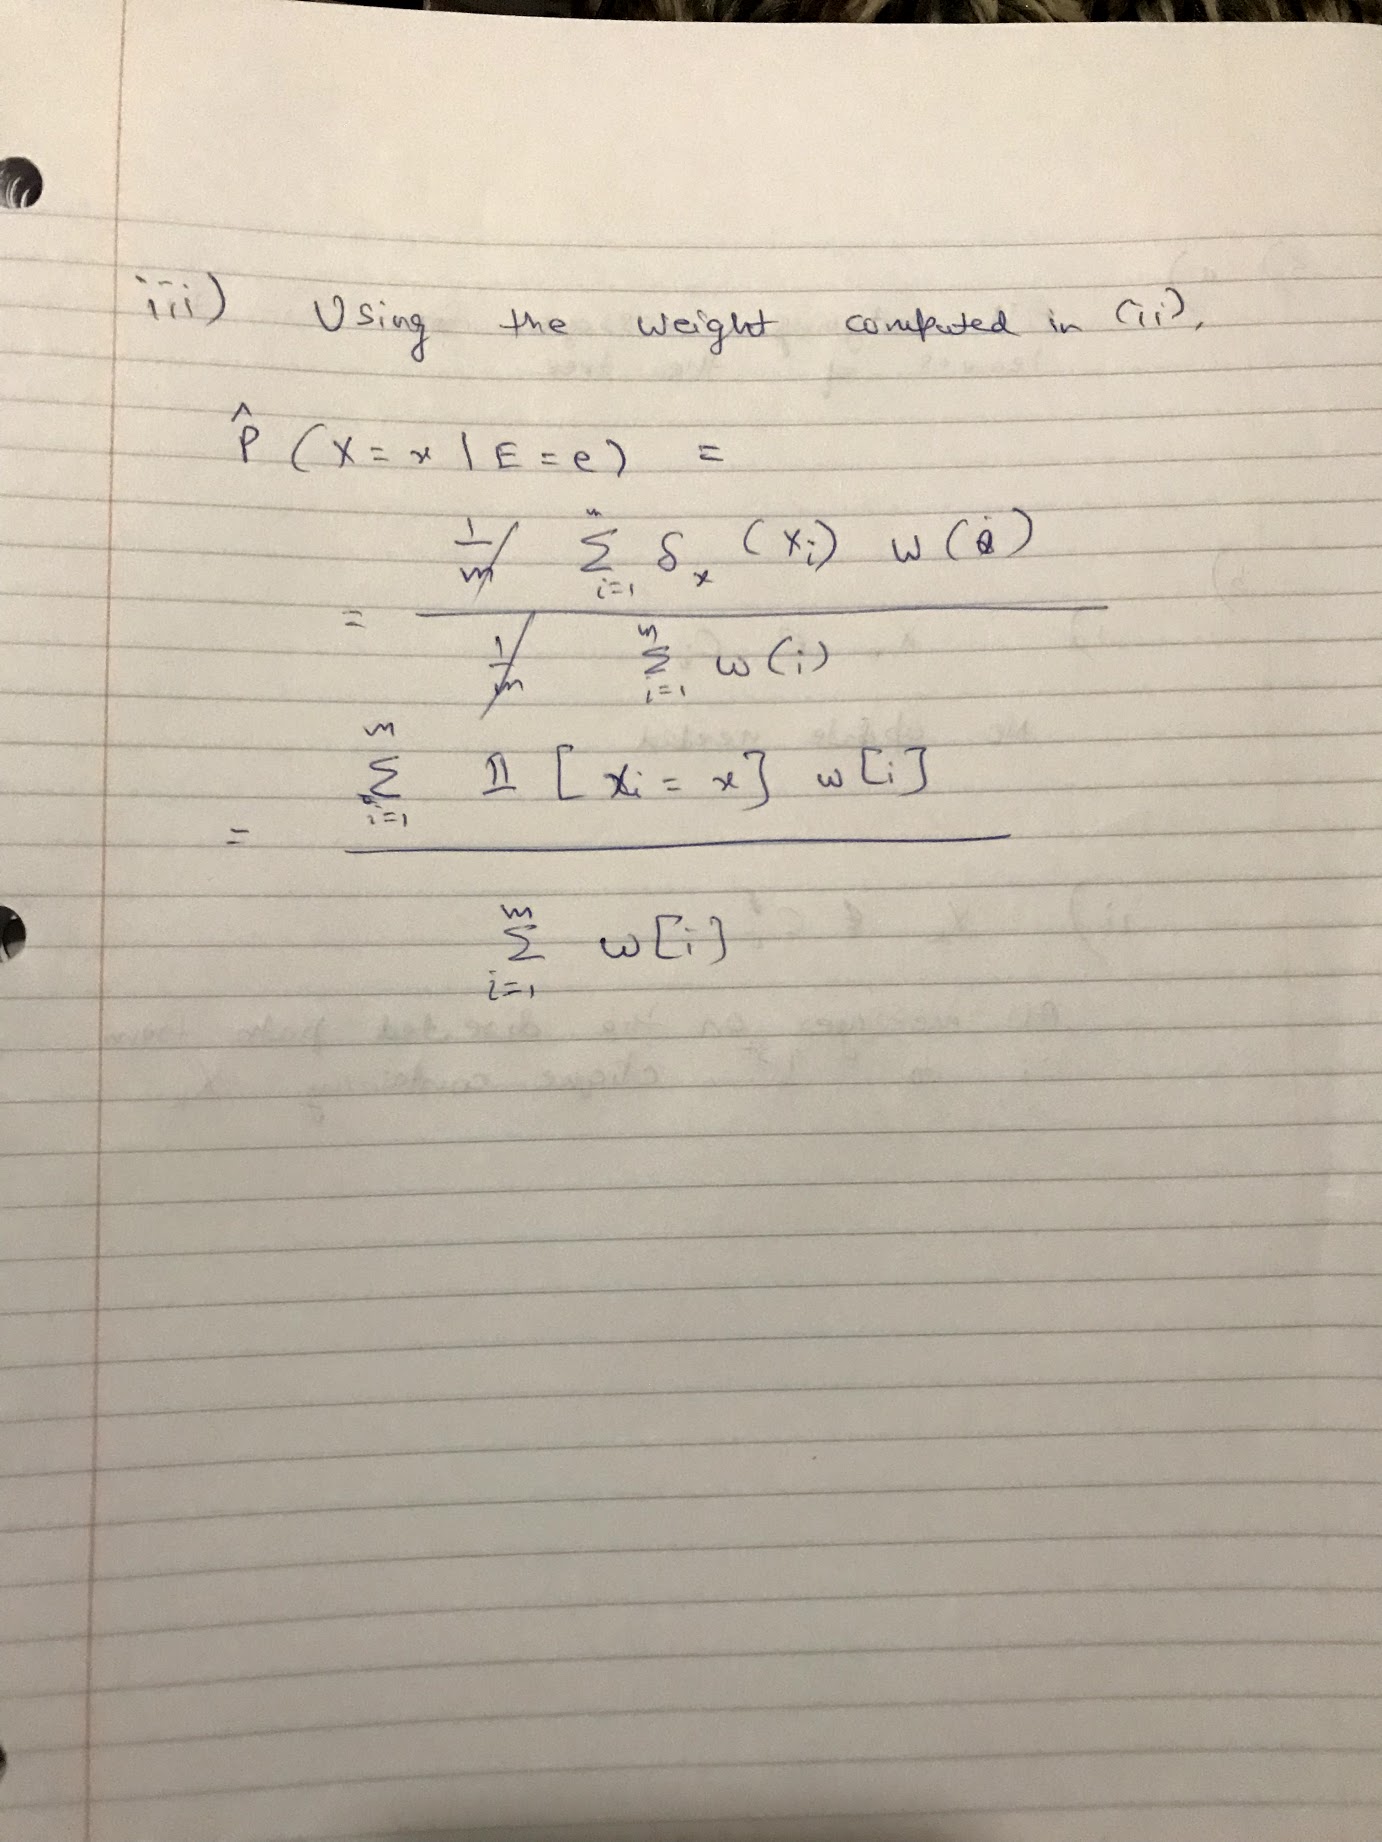 iii) Using the weight computed in (ii),
P̂ (X = x | E = e) =
= (1/m Σ_{i=1}^{m} δ_x (X_i) w(i)) / (1/m Σ_{i=1}^{m} w(i))
= (Σ_{i=1}^{m} 𝟙 [X_i = x] w[i]) / (Σ_{i=1}^{m} w[i])